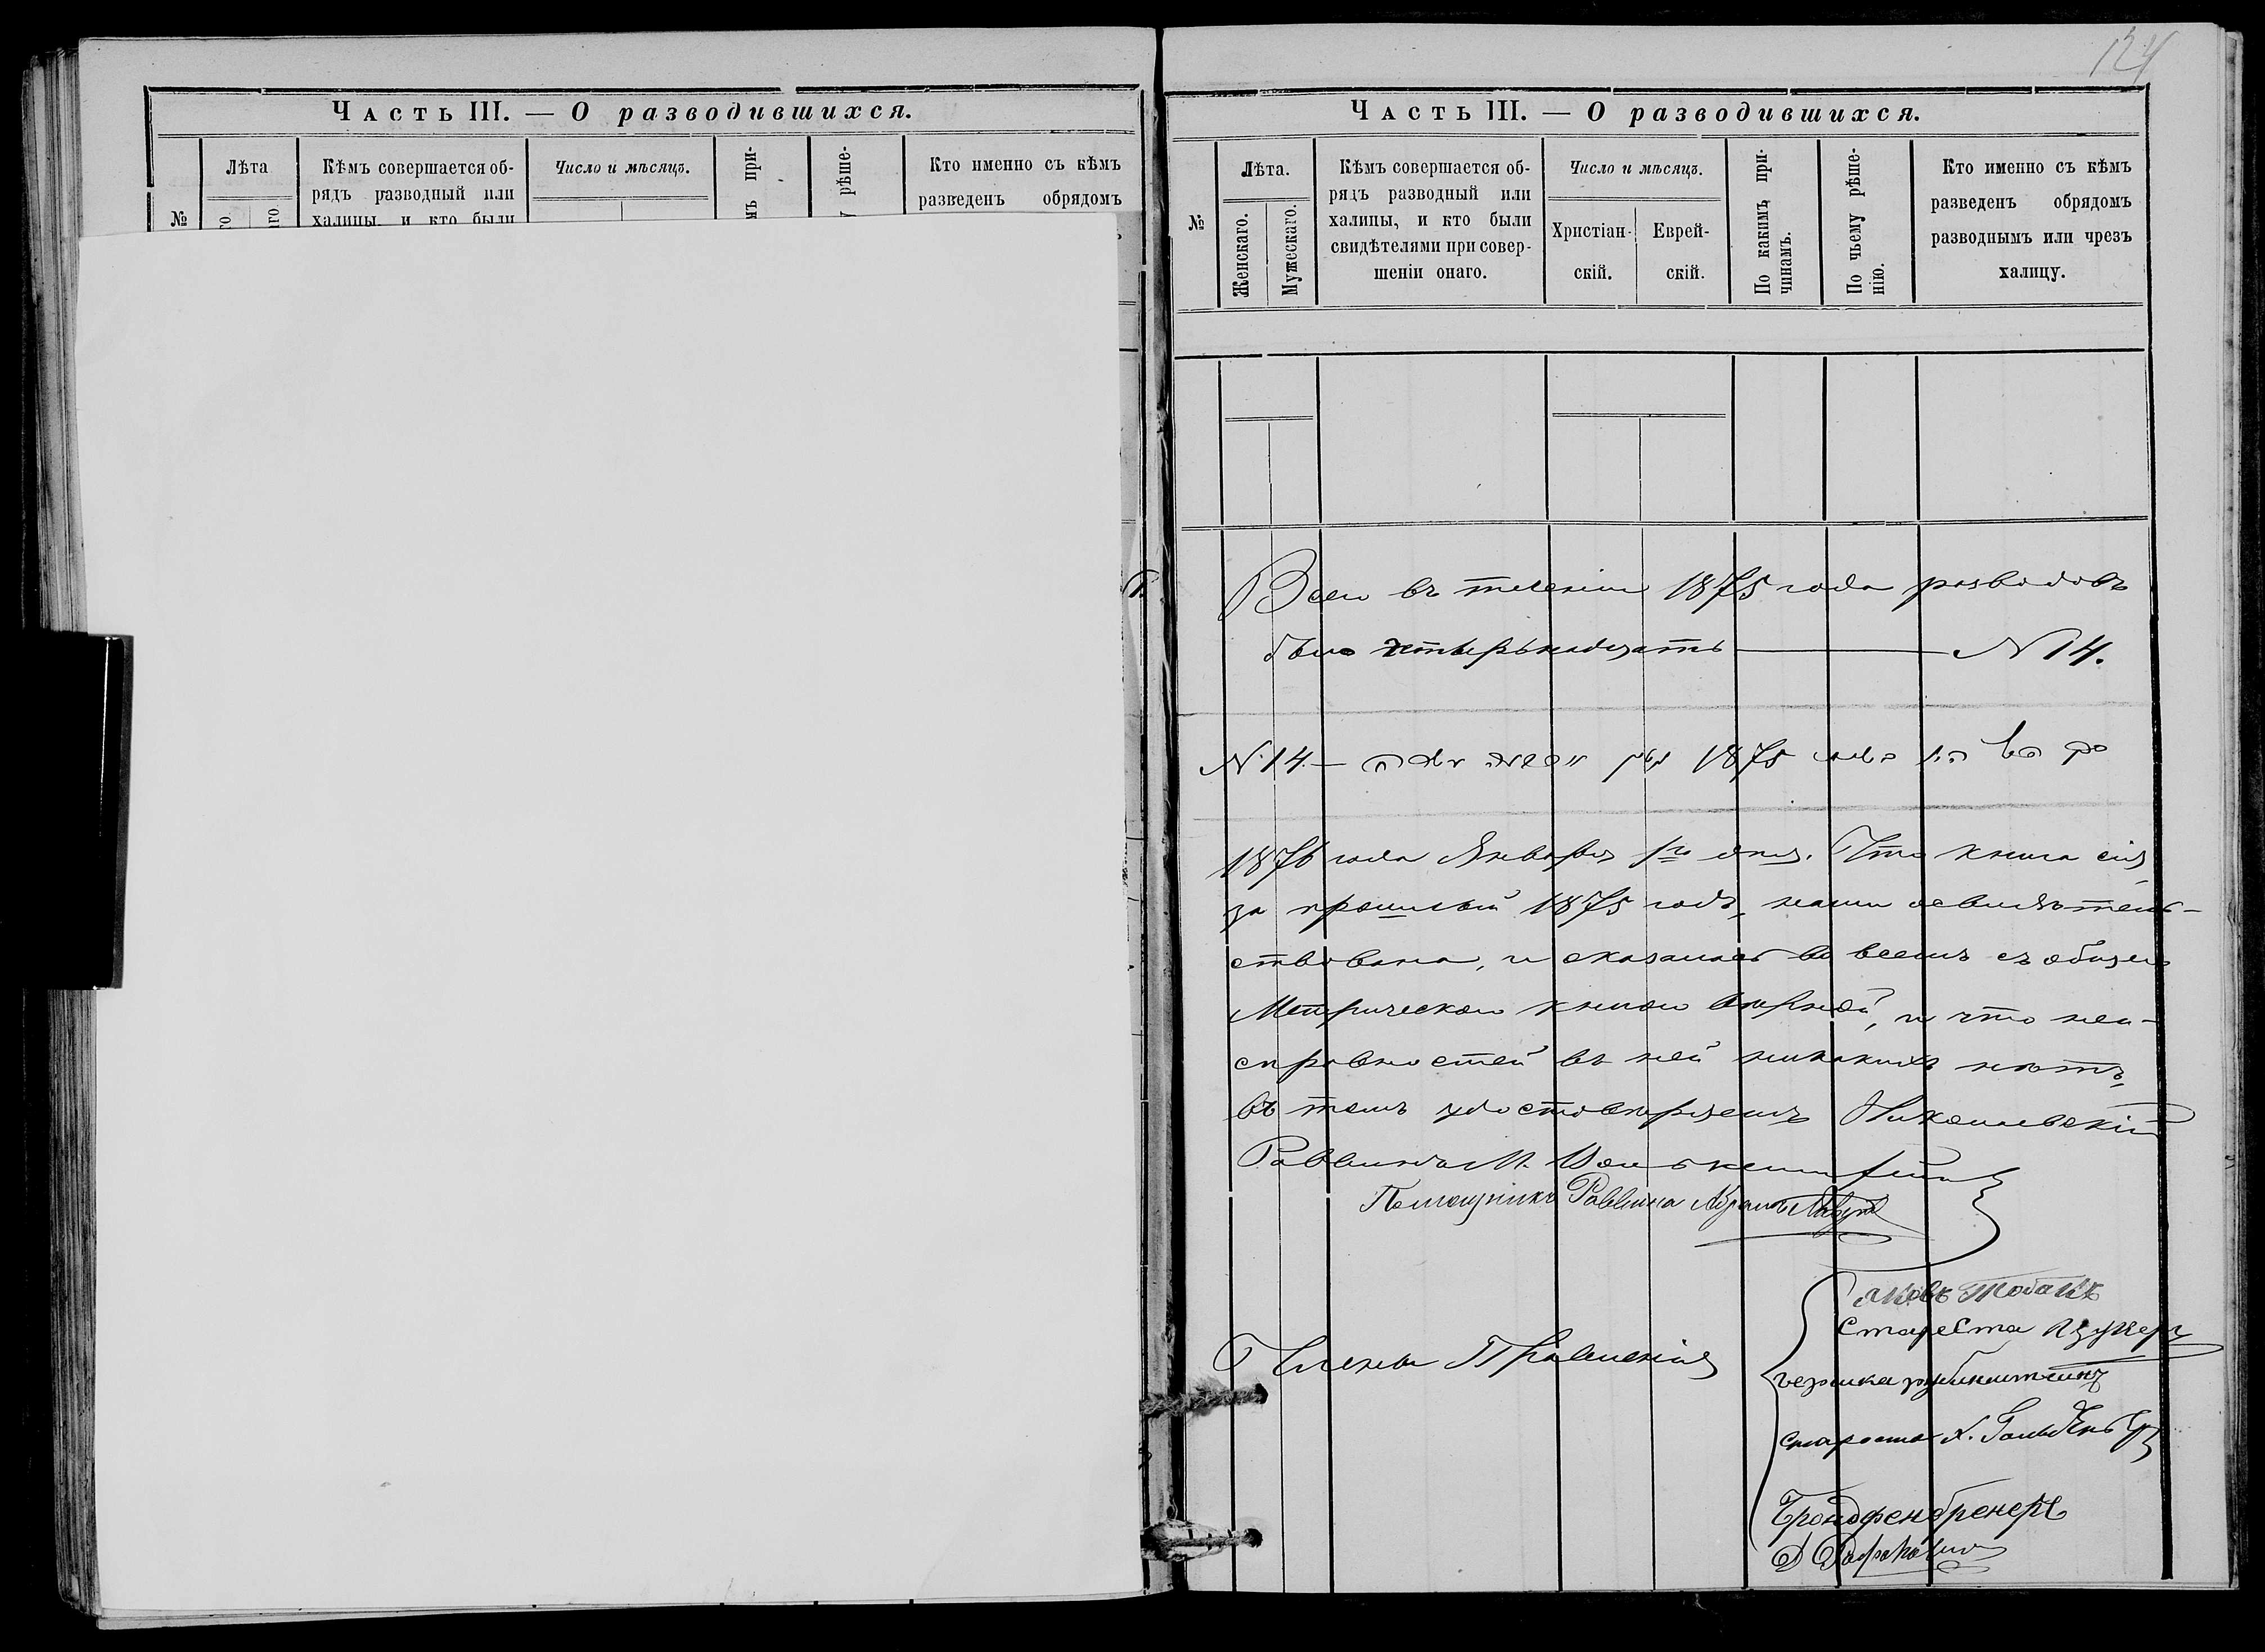 Часть III. — О разводившихся.
№
Лѣта
Кѣмъ совершается об-
рядъ разводный или
халицы и кто были
Число и мѣсяцъ.
мъ при-
у рѣше-
Кто именно съ кѣмъ
разведенъ обрядомъ
124
Часть III. — О разводившихся.
№
Лѣта.
Женскаго.
Мужескаго.
Кѣмъ совершается об-
рядъ разводный или
халицы, и кто были
свидѣтелями при совер-
шеніи онаго.
Число и мѣсяцъ.
Христіан-
скій.
Еврей-
скій.
По какимъ при-
чинамъ.
По чьему рѣше-
нію.
Кто именно съ кѣмъ
разведенъ обрядомъ
разводнымъ или чрезъ
халицу.
Всего въ теченіи 1875 года разводовъ
было четырнадцать — N 14.
N 14. — 1875
1876 года Января 1го дня. Что книга сія
за прошлый 1875 годъ, нами освидѣтель-
ствована, и оказалась во всемъ съ общею
Метрическою книгою вѣрной, и что неи-
справностей въ ней никакихъ нѣтъ,
въ томъ удостовѣряемъ Николаевскій
Раввинъ М.
Помощникъ Раввина Абрамъ
Члены Правленія
Яковъ
Староста Цукеръ
староста Х.